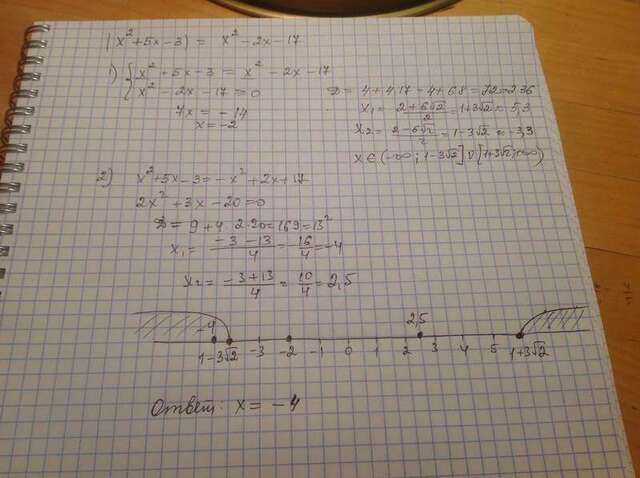 |x²+5x-3| = x²-2x-17
1) { x²+5x-3 = x²-2x-17
x²-2x-17=0
7x = -14
x = -2
D = 4+4·17=4+68=72=2·36
x₁ = (2+6√2)/2 = 1+3√2 ≈ 5,3
x₂ = (2-6√2)/2 = 1-3√2 ≈ -3,3
x ∈ (-∞; 1-3√2] ∪ [1+3√2; +∞)
2) x²+5x-3 = -x²+2x+17
2x²+3x-20=0
D = 9+4·2·20=169=13²
x₁ = (-3-13)/4 = -16/4 = -4
x₂ = (-3+13)/4 = 10/4 = 2,5
-4 2,5
1-3√2 -3 -2 -1 0 1 2 3 4 5 1+3√2
Ответ: x = -4